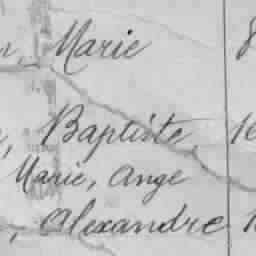 Marie
Baptiste,
Marie, Ange
, Alexandre